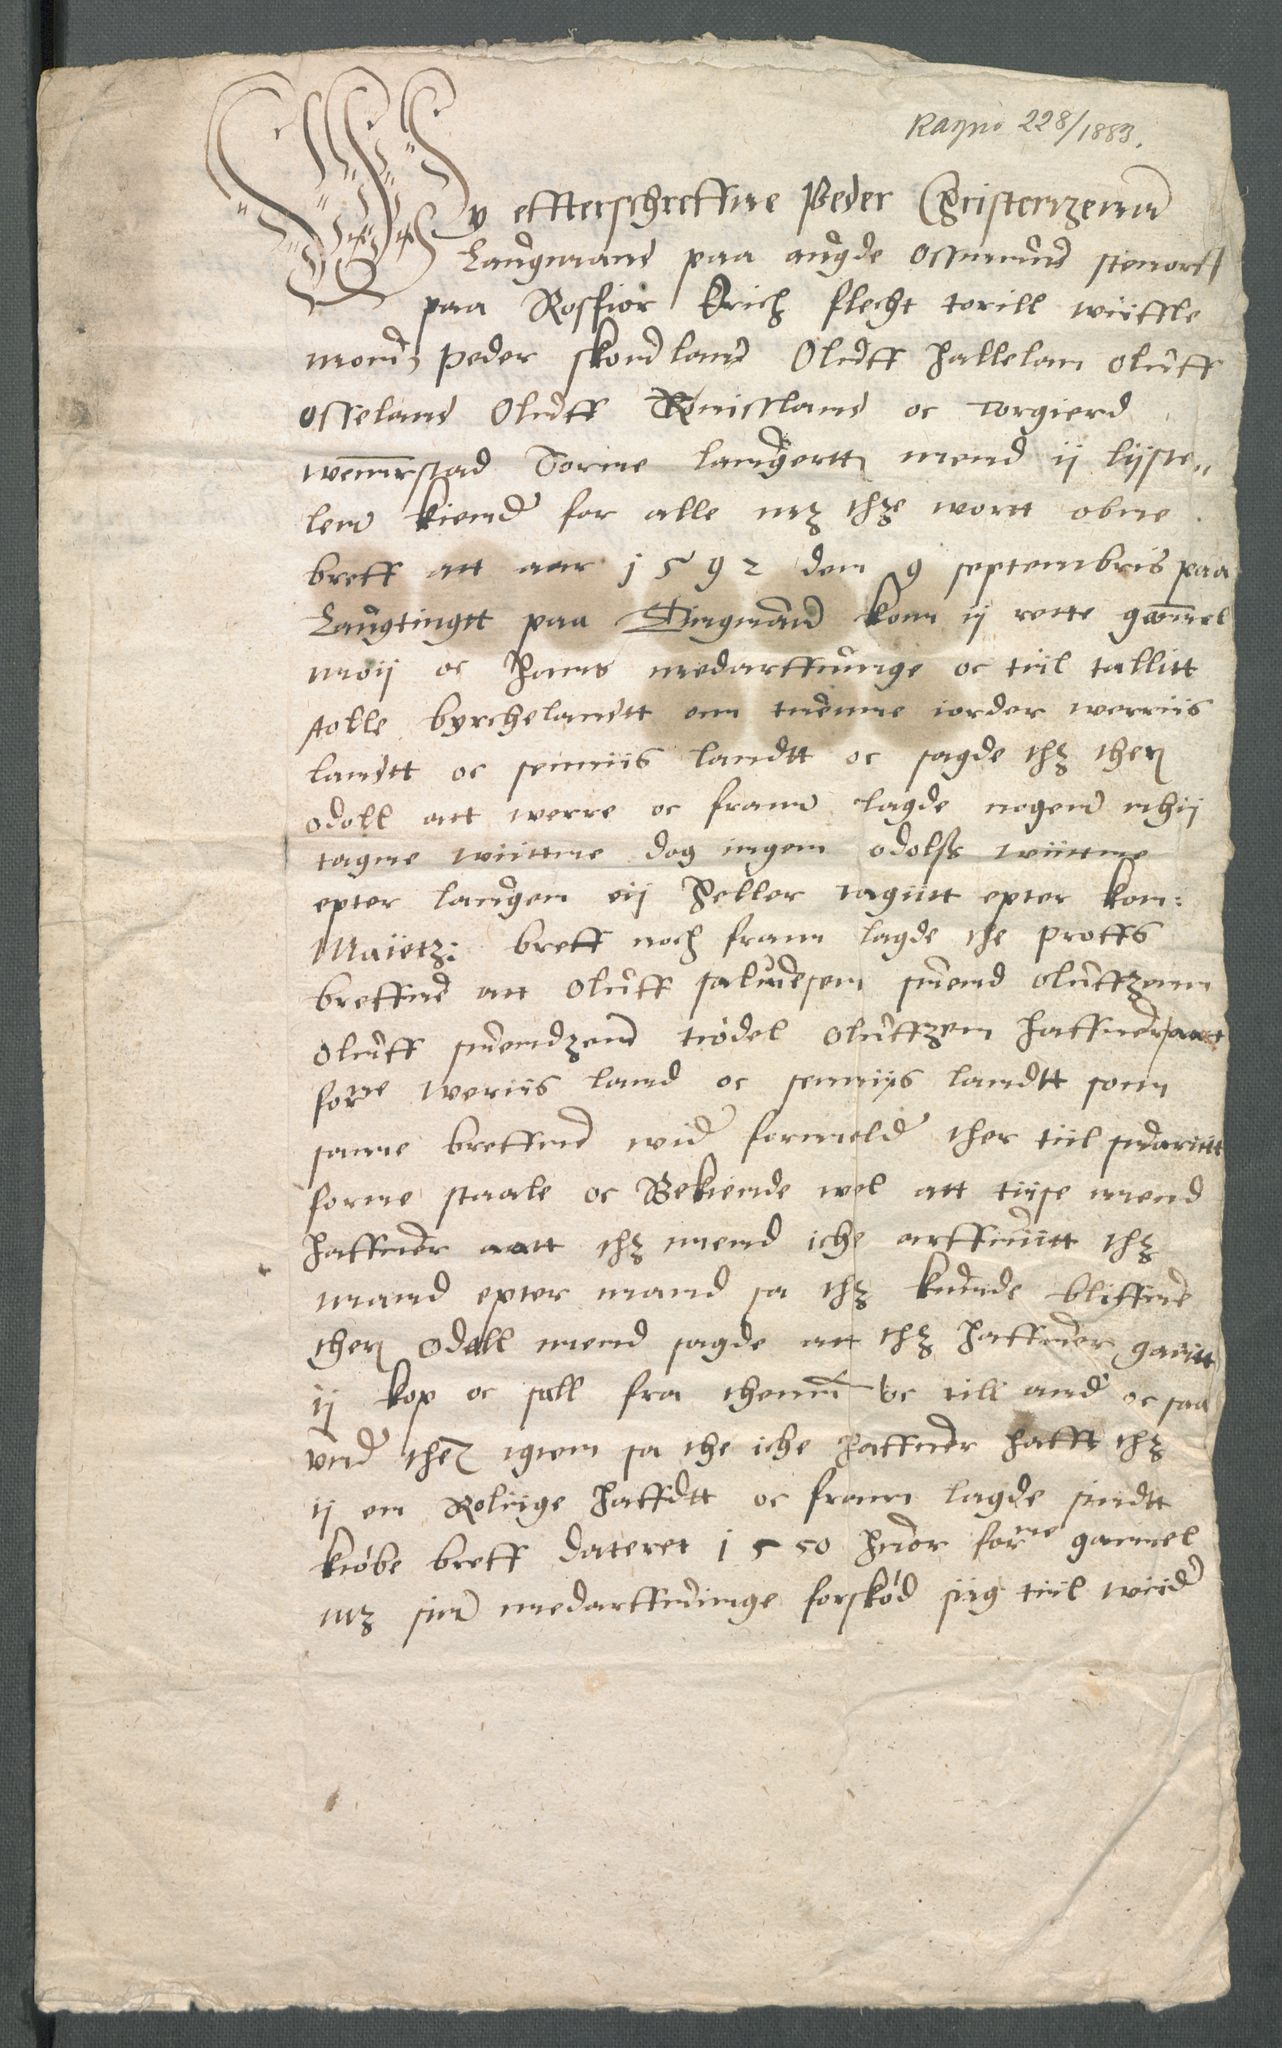 Rayno 228/1883.
Wy effterschreffne Peder Christenzenn
Laugmand paa augde Ossmund stenort
paa Rosfior Erich flecht torill wiistle
mond, Peder skondland Oluff hallelan oluff
osseland Oluff Rønissland oc Torgierd
wemmestad Sorne laugrett mend ij lijste
len kiende for alle mz thze wortt obne
breff att aar 1592 den 9 septembris paa
Laugtingtt paa Dingwand kom ij rette gammel
moij oc hans medarffuinge oc tiil tallitt
stolle byrchelandtt om tuenne iorder werriis
landtt oc senniis landtt oc sagde thz theris
odoll att werre oc fram lagde nogen nhij
tagne wiittne dog ingen odolss wiittne
epter laugen eij heller tagiitt epter kon:
Maiietz: breff noch fram lagde the proffs
breffue att oluff saluesen suend oluffzenn
oluff suendzenn triødel oluffzen haffuer aatt
forne weriis land oc senniis landtt som
samme breffue wide formelde ther tiil suaritt
forne staale oc Bekiende wel att tiise mend
haffuer aatt thz mend iche arffuiitt thz
mand epter mand sa thz kunde bliffue
theris odell mend sagde att thz haffuer gaaitt
ij kop oc sall fra thennd oc till ande oc saa
vnder thez igien sa the iche haffuer hafft thz
ij en Rolige haffdtt oc fram lagde siindtt
kiøbe breff dateret 1550 huor forne gamel
mz sine medarffuinge forskød siig tiil wiide